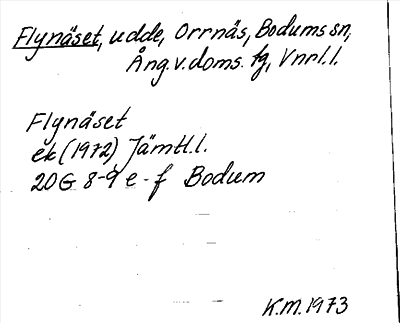 Flynäset, udde, Orrnäs, Bodums sn,
Ång. v. doms. fg, Vnrl. l.
Flynäset
ek (1972) Jämtl. l.
20G 8-9 e-f Bodum
K.M. 1973